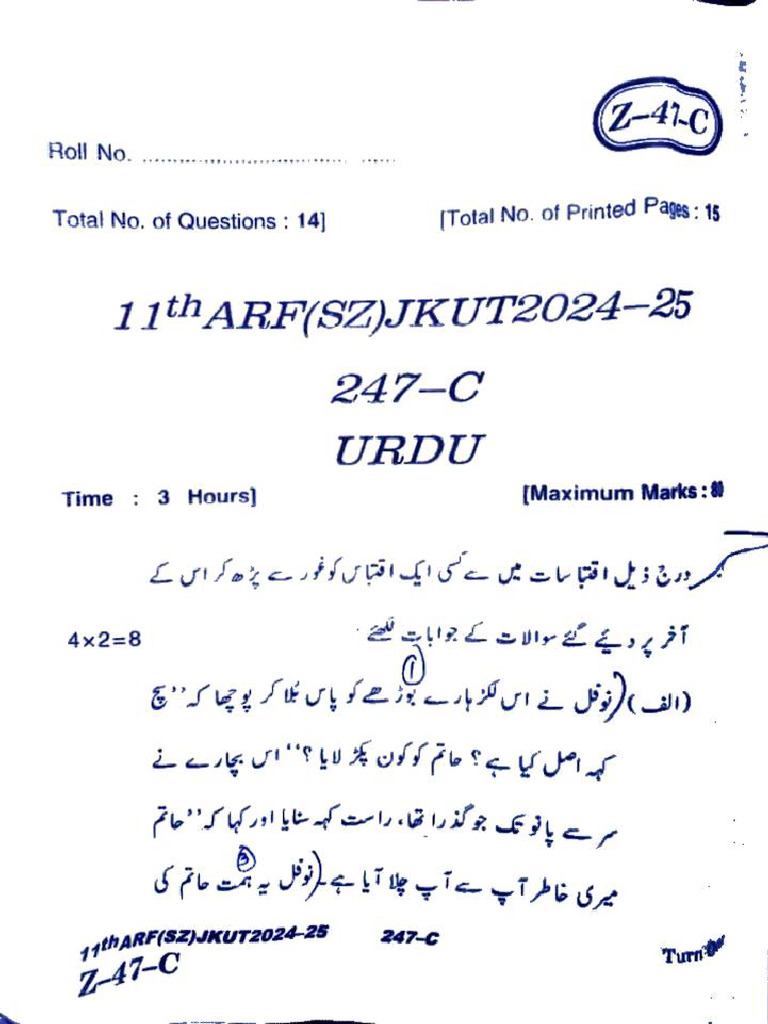 Z-47-C
Roll No. ........................................
Total No. of Questions : 14]
[Total No. of Printed Pages : 15
11th ARF(SZ)JKUT2024-25
247-C
URDU
Time : 3 Hours]
[Maximum Marks : 80
درج ذیل اقتباسات میں سے کسی ایک اقتباس کو غور سے پڑھ کر اس کے
آخر پر دیئے گئے سوالات کے جوابات لکھئے
4×2=8
(الف) نوفل نے اس لکڑہارے بوڑھے کو پاس بُلا کر پوچھا کہ ''سچ
کہہ اصل کیا ہے؟ حاتم کو کون پکڑ لایا؟'' اس بچارے نے
سر سے پانو تک جو گذرا تھا، راست کہہ سنایا اور کہا کہ ''حاتم
میری خاطر آپ سے آپ چلا آیا ہے۔ نوفل یہ ہمت حاتم کی
11th ARF(SZ)JKUT2024-25
247-C
Turn
Z-47-C